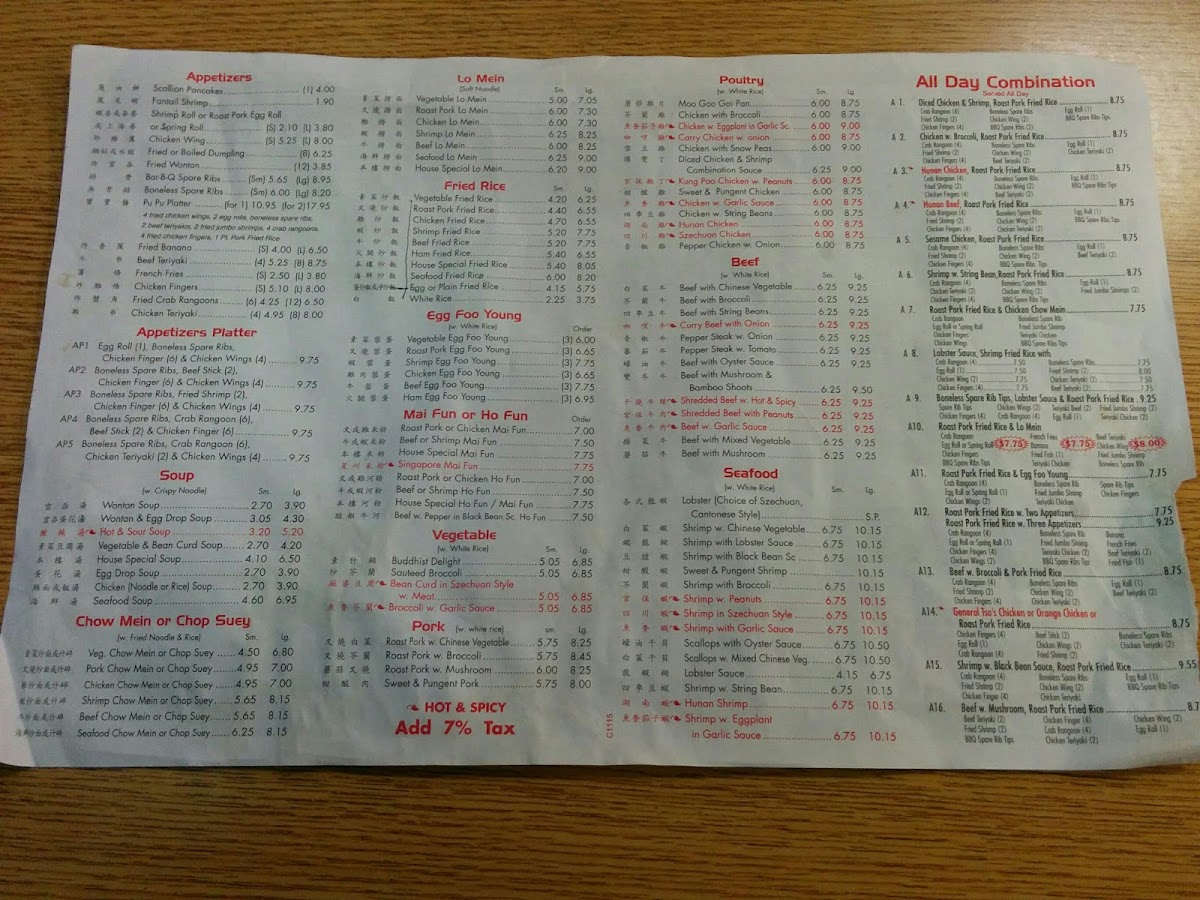 Appetizers
葱油餅 Scallion Pancakes (1) 4.00
鳳尾蝦 Fantail Shrimp 1.90
Shrimp Roll or Roast Pork Egg Roll
or Spring Roll (S) 2.10 (L) 3.80
炸雞翼 Chicken Wing (S) 5.25 (L) 8.00
Fried or Boiled Dumpling (8) 6.25
炸雲吞 Fried Wonton (12) 3.85
Bar-B-Q Spare Ribs (Sm) 5.65 (Lg) 8.95
無骨排 Boneless Spare Ribs (Sm) 6.00 (Lg) 8.20
寶寶盤 Pu Pu Platter (for 1) 10.95 (for 2) 17.95
4 fried chicken wings, 2 egg rolls, boneless spare ribs,
2 beef teriyakis, 2 fried jumbo shrimps, 4 crab rangoons,
4 fried chicken fingers, 1 Pt. Pork Fried Rice
炸香蕉 Fried Banana (S) 4.00 (L) 6.50
牛串 Beef Teriyaki (4) 5.25 (8) 8.75
薯條 French Fries (S) 2.50 (L) 3.80
炸雞條 Chicken Fingers (S) 5.10 (L) 8.00
炸蟹角 Fried Crab Rangoons (6) 4.25 (12) 6.50
雞串 Chicken Teriyaki (4) 4.95 (8) 8.00
Appetizers Platter
AP1 Egg Roll (1), Boneless Spare Ribs,
Chicken Finger (6) & Chicken Wings (4) 9.75
AP2 Boneless Spare Ribs, Beef Stick (2),
Chicken Finger (6) & Chicken Wings (4) 9.75
AP3 Boneless Spare Ribs, Fried Shrimp (2),
Chicken Finger (6) & Chicken Wings (4) 9.75
AP4 Boneless Spare Ribs, Crab Rangoon (6),
Beef Stick (2) & Chicken Finger (6) 9.75
AP5 Boneless Spare Ribs, Crab Rangoon (6),
Chicken Teriyaki (2) & Chicken Wings (4) 9.75
Soup
(w. Crispy Noodle) Sm. Lg.
雲吞湯 Wonton Soup 2.70 3.90
雲吞蛋花湯 Wonton & Egg Drop Soup 3.05 4.30
酸辣湯 Hot & Sour Soup 3.20 5.20
素菜豆腐湯 Vegetable & Bean Curd Soup 2.70 4.20
本樓湯 House Special Soup 4.10 6.50
蛋花湯 Egg Drop Soup 2.70 3.90
雞面或飯湯 Chicken (Noodle or Rice) Soup 2.70 3.90
海鮮湯 Seafood Soup 4.60 6.95
Chow Mein or Chop Suey
(w. Fried Noodle & Rice) Sm. Lg.
素菜炒面或什碎 Veg. Chow Mein or Chop Suey 4.50 6.80
叉燒炒面或什碎 Pork Chow Mein or Chop Suey 4.95 7.00
雞炒面或什碎 Chicken Chow Mein or Chop Suey 4.95 7.00
蝦炒面或什碎 Shrimp Chow Mein or Chop Suey 5.65 8.15
牛炒面或什碎 Beef Chow Mein or Chop Suey 5.65 8.15
海鮮炒面或什碎 Seafood Chow Mein or Chop Suey 6.25 8.15
Lo Mein
(Soft Noodle) Sm. Lg.
素菜撈面 Vegetable Lo Mein 5.00 7.05
叉燒撈面 Roast Pork Lo Mein 6.00 7.30
雞撈面 Chicken Lo Mein 6.00 7.30
蝦撈面 Shrimp Lo Mein 6.25 8.25
牛撈面 Beef Lo Mein 6.00 8.25
海鮮撈面 Seafood Lo Mein 6.25 9.00
本樓撈面 House Special Lo Mein 6.20 9.00
Fried Rice
Sm. Lg.
素菜炒飯 Vegetable Fried Rice 4.20 6.25
叉燒炒飯 Roast Pork Fried Rice 4.40 6.55
雞炒飯 Chicken Fried Rice 4.70 6.55
蝦炒飯 Shrimp Fried Rice 5.20 7.75
牛炒飯 Beef Fried Rice 5.20 7.75
火腿炒飯 Ham Fried Rice 5.40 6.55
本樓炒飯 House Special Fried Rice 5.40 8.05
海鮮炒飯 Seafood Fried Rice 6.00 8.20
Egg or Plain Fried Rice 4.15 5.75
白飯 White Rice 2.25 3.75
Egg Foo Young
(w. White Rice) Order
素菜蓉蛋 Vegetable Egg Foo Young (3) 6.00
叉燒蓉蛋 Roast Pork Egg Foo Young (3) 6.65
蝦蓉蛋 Shrimp Egg Foo Young (3) 7.75
雞肉蓉蛋 Chicken Egg Foo Young (3) 6.65
牛蓉蛋 Beef Egg Foo Young (3) 7.75
火腿蓉蛋 Ham Egg Foo Young (3) 6.95
Mai Fun or Ho Fun
Order
叉或雞米粉 Roast Pork or Chicken Mai Fun 7.00
牛或蝦米粉 Beef or Shrimp Mai Fun 7.50
本樓米粉 House Special Mai Fun 7.75
星州米粉 Singapore Mai Fun 7.75
叉或雞河粉 Roast Pork or Chicken Ho Fun 7.00
牛或蝦河粉 Beef or Shrimp Ho Fun 7.50
本樓河粉 House Special Ho Fun / Mai Fun 7.75
豉椒牛河 Beef w. Pepper in Black Bean Sc. Ho Fun 7.50
Vegetable
(w. White Rice) Sm. Lg.
素什錦 Buddhist Delight 5.05 6.85
炒芥蘭 Sauteed Broccoli 5.05 6.85
麻婆豆腐 Bean Curd in Szechuan Style
w. Meat 5.05 6.85
魚香芥蘭 Broccoli w. Garlic Sauce 5.05 6.85
Pork (w. white rice) Sm. Lg.
叉燒白菜 Roast Pork w. Chinese Vegetable 5.75 8.25
叉燒芥蘭 Roast Pork w. Broccoli 5.75 8.45
蘑菇叉燒 Roast Pork w. Mushroom 6.00 8.25
甜酸肉 Sweet & Pungent Pork 5.75 8.00
HOT & SPICY
Add 7% Tax
C1115
Poultry
(w. White Rice) Sm. Lg.
蘑菇雞片 Moo Goo Gai Pan 6.00 8.75
芥蘭雞 Chicken with Broccoli 6.00 8.75
魚香茄子雞 Chicken w. Eggplant in Garlic Sc. 6.00 9.00
咖喱雞 Curry Chicken w. onion 6.00 8.75
雪豆雞 Chicken with Snow Peas 6.00 9.00
爆雙丁 Diced Chicken & Shrimp
Combination Sauce 6.25 9.25
宮保雞丁 Kung Pao Chicken w. Peanuts 6.00 8.75
甜酸雞 Sweet & Pungent Chicken 6.00 8.75
魚香雞 Chicken w. Garlic Sauce 6.00 8.75
四季豆雞 Chicken w. String Beans 6.00 8.75
湖南雞 Hunan Chicken 6.00 8.75
四川雞 Szechuan Chicken 6.00 8.75
青椒雞 Pepper Chicken w. Onion 6.00 8.75
Beef
(w. White Rice) Sm. Lg.
白菜牛 Beef with Chinese Vegetable 6.25 9.25
芥蘭牛 Beef with Broccoli 6.25 9.25
四季豆牛 Beef with String Beans 6.25 9.25
咖喱牛 Curry Beef with Onion 6.25 9.25
青椒牛 Pepper Steak w. Onion 6.25 9.25
蕃茄牛 Pepper Steak w. Tomato 6.25 9.25
蠔油牛 Beef with Oyster Sauce 6.25 9.25
雙冬牛 Beef with Mushroom &
Bamboo Shoots 6.25 9.50
干燒牛絲 Shredded Beef w. Hot & Spicy 6.25 9.25
宮保牛肉 Shredded Beef with Peanuts 6.25 9.25
魚香牛肉 Beef w. Garlic Sauce 6.25 9.25
雜菜牛 Beef with Mixed Vegetable 6.25 9.25
蘑菇牛 Beef with Mushroom 6.25 9.25
Seafood
(w. White Rice) Sm. Lg.
各式龍蝦 Lobster (Choice of Szechuan,
Cantonese Style) S.P.
白菜蝦 Shrimp w. Chinese Vegetable 6.75 10.15
蝦龍糊 Shrimp with Lobster Sauce 6.75 10.15
豆豉蝦 Shrimp with Black Bean Sc 6.75 10.15
甜酸蝦 Sweet & Pungent Shrimp 10.15
芥蘭蝦 Shrimp with Broccoli 6.75 10.15
宮保蝦 Shrimp w. Peanuts 6.75 10.15
四川蝦 Shrimp in Szechuan Style 6.75 10.15
魚香蝦 Shrimp with Garlic Sauce 6.75 10.15
蠔油干貝 Scallops with Oyster Sauce 6.75 10.50
白菜干貝 Scallops w. Mixed Chinese Veg. 6.75 10.50
Lobster Sauce 4.15 6.75
四季豆蝦 Shrimp w. String Bean 6.75 10.15
湖南蝦 Hunan Shrimp 6.75 10.15
魚香茄子蝦 Shrimp w. Eggplant
in Garlic Sauce 6.75 10.15
All Day Combination
Served All Day
A 1. Diced Chicken & Shrimp, Roast Pork Fried Rice 8.75
Crab Rangoon (4) Boneless Spare Ribs Egg Roll (1)
Fried Shrimp (2) Chicken Wing (2) BBQ Spare Ribs Tips
Chicken Fingers (4) BBQ Spare Ribs (2)
A 2. Chicken w. Broccoli, Roast Pork Fried Rice 8.75
Crab Rangoon (4) Boneless Spare Ribs Egg Roll (1)
Fried Shrimp (2) Chicken Wing (2) Chicken Teriyaki (2)
Chicken Fingers (4) Beef Teriyaki (2)
A 3. Hunan Chicken, Roast Pork Fried Rice 8.75
Crab Rangoon (4) Boneless Spare Ribs Egg Roll (1)
Fried Shrimp (2) Chicken Wing (2) BBQ Spare Ribs Tips
Chicken Fingers (4) Beef Teriyaki (2)
A 4. Hunan Beef, Roast Pork Fried Rice 8.75
Crab Rangoon (4) Boneless Spare Ribs Egg Roll (1)
Fried Shrimp (2) Chicken Wing (2)
Chicken Fingers (4) BBQ Spare Ribs (2)
A 5. Sesame Chicken, Roast Pork Fried Rice 8.75
Crab Rangoon (4) Boneless Spare Ribs Egg Roll (1)
Fried Shrimp (2) Chicken Wing (2) Beef Teriyaki (2)
Chicken Fingers (4) BBQ Spare Ribs Tips
A 6. Shrimp w. String Bean, Roast Pork Fried Rice 8.75
Crab Rangoon (4) Boneless Spare Ribs Egg Roll (1)
Chicken Teriyaki (2) Chicken Wing (2) Fried Jumbo Shrimps (2)
Chicken Fingers (4) BBQ Spare Ribs Tips
A 7. Roast Pork Fried Rice & Chicken Chow Mein 8.75
Crab Rangoon Boneless Spare Rib
Egg Roll or Spring Roll Fried Jumbo Shrimp
Chicken Fingers Chicken Wing (2)
A 8. Lobster Sauce, Shrimp Fried Rice with
Crab Rangoon (4) 7.50 Boneless Spare Ribs 7.75
Egg Roll (1) 7.50 Fried Shrimp (2) 8.00
Chicken Wing (2) 7.75 Chicken Teriyaki (2) 7.50
Chicken Fingers (4) 7.75 Beef Teriyaki (2) 7.75
A 9. Boneless Spare Rib Tips, Lobster Sauce & Roast Pork Fried Rice 9.25
Spare Rib Tips Chicken Wing (2) Teriyaki Beef (2) Fried Jumbo Shrimp (2)
Chicken Fingers (4) Crab Rangoon (4) Egg Roll (1) Chicken Teriyaki (2)
A10. Roast Pork Fried Rice & Lo Mein
Crab Rangoon French Fries Beef Teriyaki
Egg Roll or Spring Roll $7.75 Banana $7.75 Chicken Wing $8.00
Chicken Fingers Fried Fish (1) Fried Jumbo Shrimp
BBQ Spare Ribs Tips Teriyaki Chicken Boneless Spare Rib
A11. Roast Pork Fried Rice & Egg Foo Young 7.75
Crab Rangoon (4) Boneless Spare Ribs Chicken Teriyaki (2)
Egg Roll or Spring Roll (1) Fried Jumbo Shrimp Chicken Fingers
Chicken Wings (2) Chicken Teriyaki
A12. Roast Pork Fried Rice w. Two Appetizers 7.75
Roast Pork Fried Rice w. Three Appetizers 9.25
Egg Roll or Spring Roll (1) Boneless Spare Rib Banana
Crab Rangoon (4) Fried Jumbo Shrimp French Fries
Chicken Fingers (4) Teriyaki Chicken (2) Beef Teriyaki (2)
BBQ Spare Ribs Tips Chicken Wing (2) Fried Fish (1)
A13. Beef w. Broccoli & Pork Fried Rice 8.75
Crab Rangoon (4) Boneless Spare Ribs Egg Roll (1)
Fried Shrimp (2) Chicken Wing (2) Chicken Teriyaki (2)
Chicken Fingers (4) Beef Teriyaki (2)
A14. General Tso's Chicken or Orange Chicken or
Roast Pork Fried Rice 8.75
Chicken Fingers (4) Beef Stick (2) Boneless Spare Ribs
Egg Roll (1) Chicken Wing (2) Crab Rangoon (4)
Fried Shrimp (2)
A15. Shrimp w. Black Bean Sauce, Roast Pork Fried Rice 9.55
Crab Rangoon Boneless Spare Ribs Egg Roll (1)
Fried Shrimp (2) Chicken Wing (2) BBQ Spare Rib Tips
Chicken Finger (4) Chicken Teriyaki (2)
A16. Beef w. Mushroom, Roast Pork Fried Rice 8.7
Beef Teriyaki (2) Chicken Finger (4) Chicken Wing (2)
Fried Shrimp (2) Crab Rangoon (4) Egg Roll (1)
BBQ Spare Rib Tips Chicken Teriyaki (2)